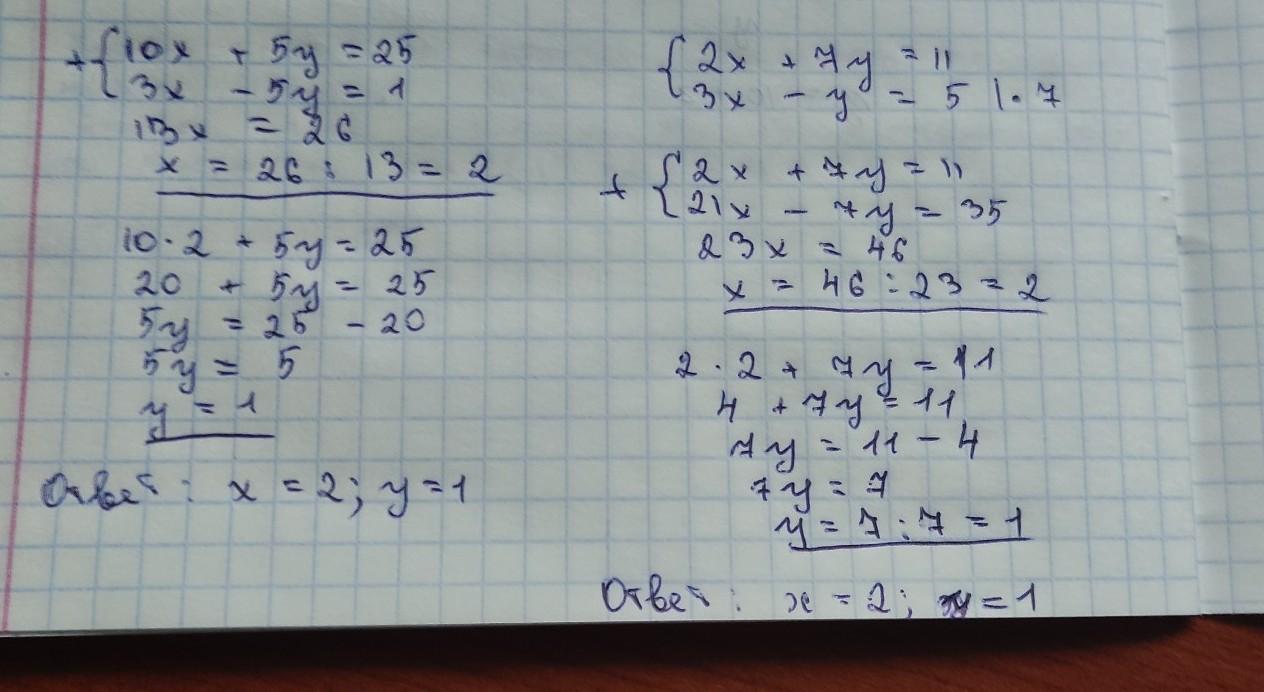 + { 10x + 5y = 25
3x - 5y = 1
13x = 26
x = 26 : 13 = 2
10 · 2 + 5y = 25
20 + 5y = 25
5y = 25 - 20
5y = 5
y = 1
Ответ : x = 2; y = 1
{ 2x + 7y = 11
3x - y = 5 | · 7
+ { 2x + 7y = 11
21x - 7y = 35
23x = 46
x = 46 : 23 = 2
2 · 2 + 7y = 11
4 + 7y = 11
7y = 11 - 4
7y = 7
y = 7 : 7 = 1
Ответ : x = 2; y = 1